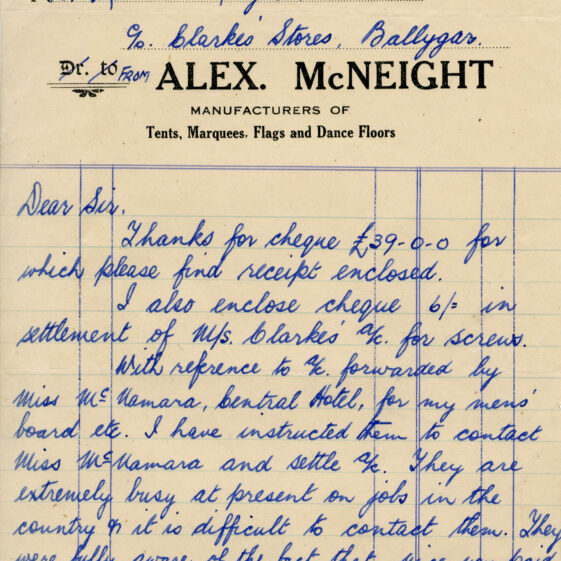 c/o Clarkes' Stores, Ballygar.
Dr. to FROM ALEX. McNEIGHT
MANUFACTURERS OF
Tents, Marquees, Flags and Dance Floors
Dear Sir.
Thanks for cheque £39-0-0 for
which please find receipt enclosed.
I also enclose cheque 6/= in
settlement of M/s. Clarkes' a/c. for screws.
With reference to a/c. forwarded by
Miss Mc Namara, Central Hotel, for my mens'
board etc. I have instructed them to contact
Miss Mc Namara and settle a/c. They are
extremely busy at present on jobs in the
country & it is difficult to contact them. They
were fully aware of the fact that